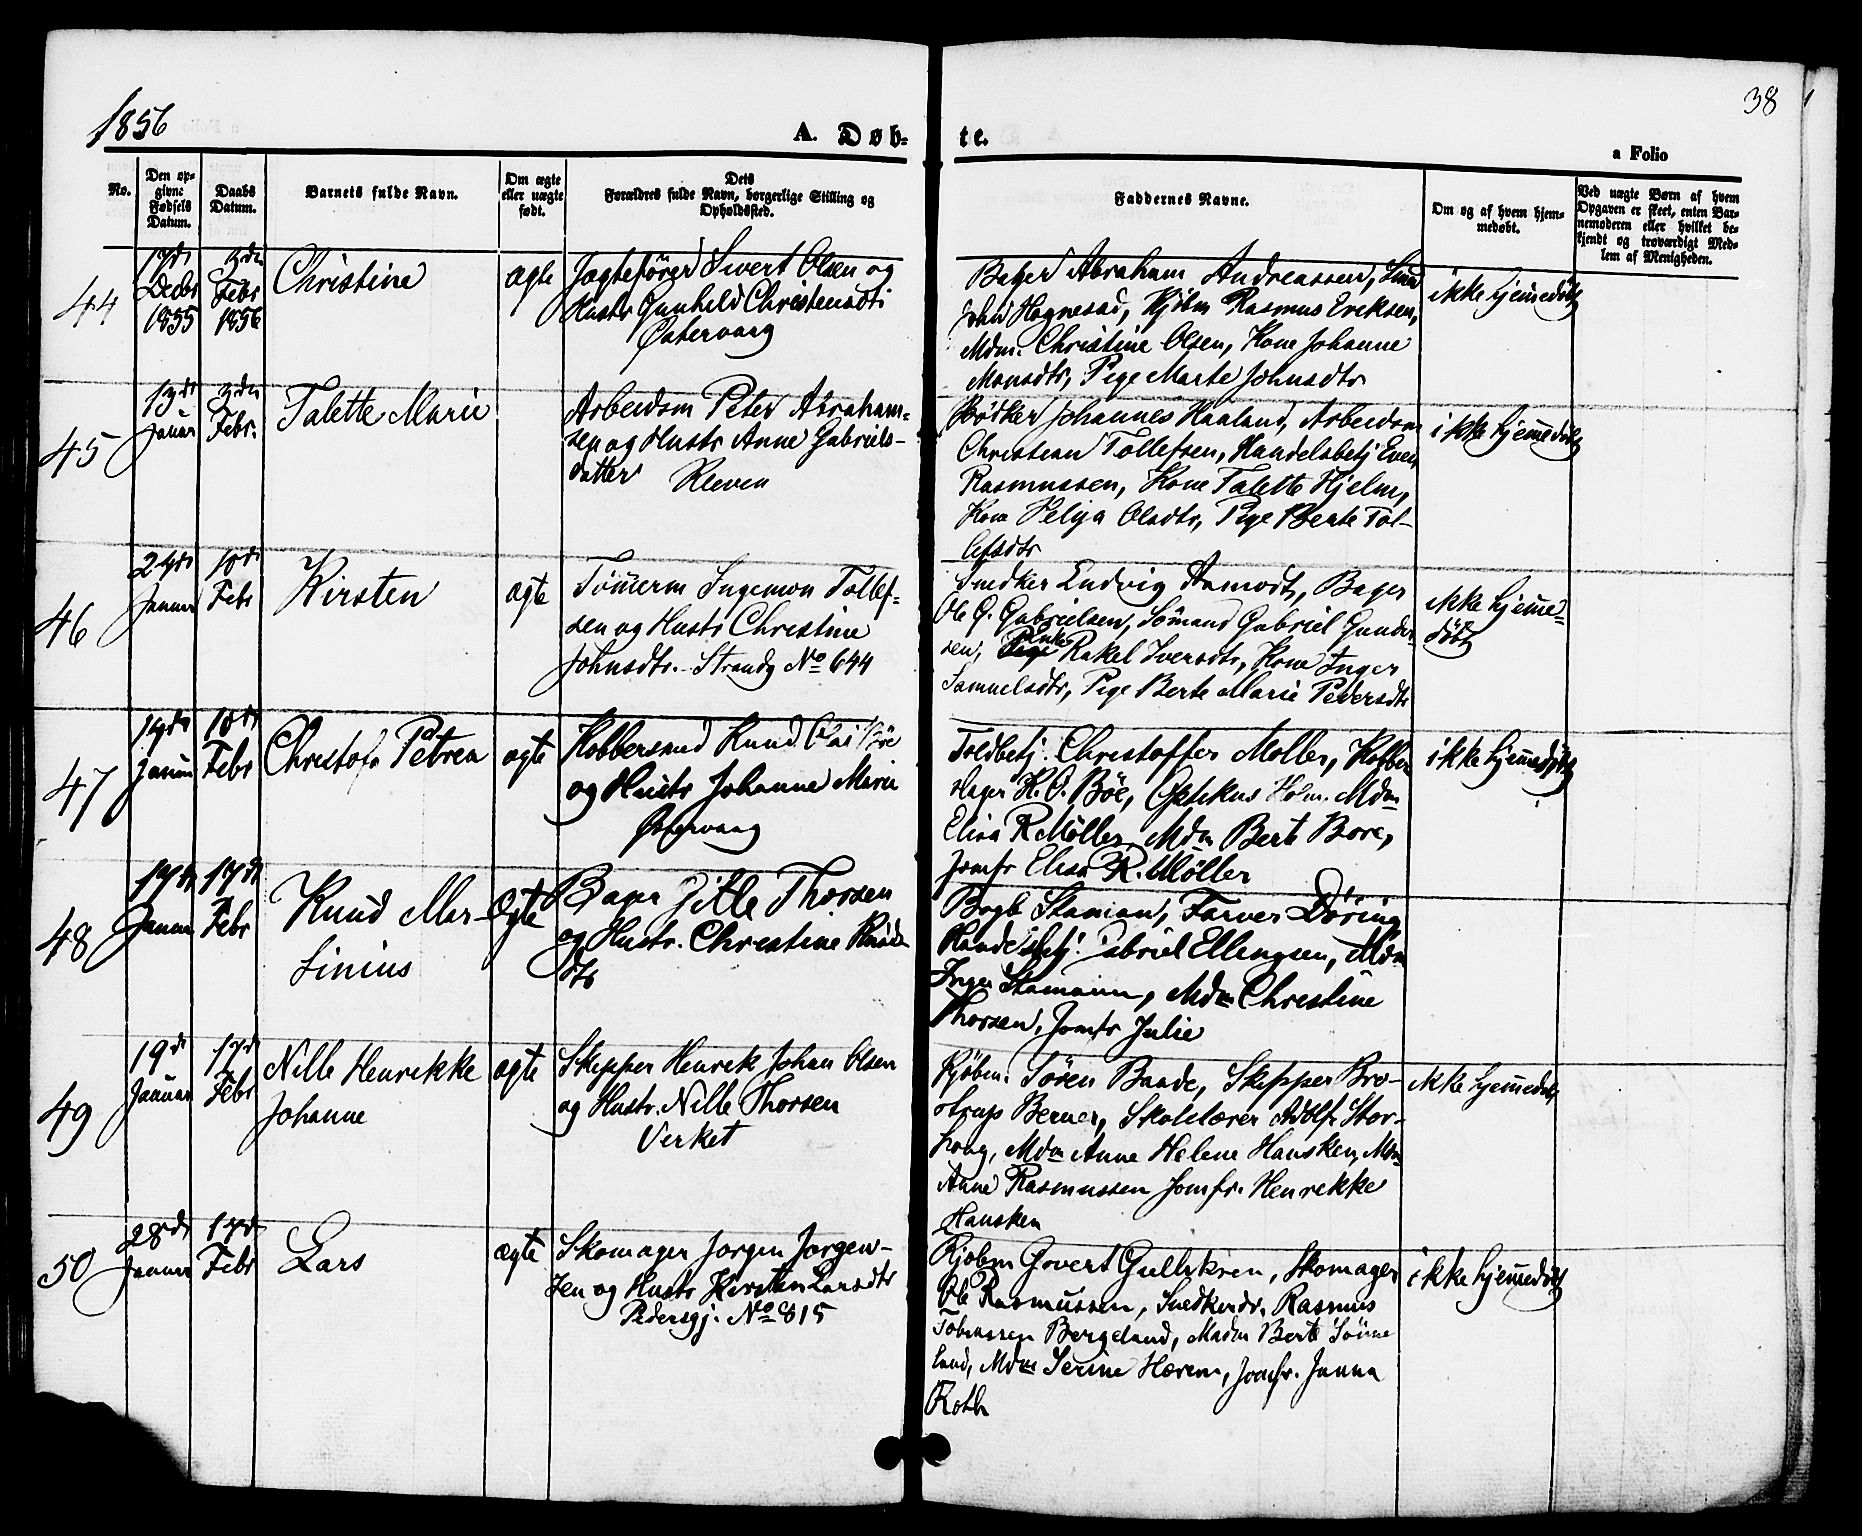 1856
A. Døb-
te.
38
a Folio
No.
Den op-
givne
Fødsels
Datum.
Daabs
Datum.
Barnets fulde Navn.
Om ægte
eller uægte
født.
Dets
Forældres fulde Navn, borgerlige Stilling og
Opholdssted.
Faddernes Navne.
Om og af hvem hjem-
medøbt.
Ved uægte Børn af hvem
Opgaven er skeet, enten Bar-
nemoderen eller hvilket be-
kjendt og troværdigt Med-
lem af Menigheden.
44
17de
Decbr
1855
3die
Febr
1856
Christine
ægte
Jægtefører Sivert Olsen og
Hustr Gunhild Christensdtr
Østervaag
Bager Abraham Andreassen,
John Hognestad, Kjøbm Rasmus Eriksen,
Mdm. Christine Olsen, Kone Johanne
Monsdtr, Pige Marte Johnsdtr
ikke hjemmedøbt
45
13de
Januar
3die
Febr.
Talette Marie
Arbeidsm Peter Abraham-
sen og Hustr Anne Gabriels-
datter Kleven
Bødker Johannes Haaland, Arbeidsm
Christian Tollefsen, Handelsbetj Even
Rasmussen, Kone Talette Hjelm,
Kone Helga Olsdtr, Pige Berte Tol-
lefsdtr
ikke hjemmedøbt
46
24de
Januar
10de
Febr
Kirsten
ægte
Tømmerm Ingemon Tollef-
sen og Hustr Christine
Johnsdtr. Strandg No 644
Snedker Ludvig Aamodt, Bager
Ole G. Gabrielsen, Sømand Gabriel Gunder-
sen, Enke Rakel Iversdtr, Kone Inger
Samuelsdtr, Pige Berte Marie Pedersdtr
ikke hjemme-
døbt
47
14de
Januar
10de
Febr
Christofa Petrea
ægte
Kobbersmed Knud Olai Bøe
og Hustr Johanne Marie
Østervaag
Toldbetj. Christoffer Møller, Kobber
slager H. O. Bøe, Optikus Holm. Mdm
Elisa R Møller, Mdm Berte Bore,
Jomfr Elisa R. Møller
ikke hjemmedøbt
48
14de
Januar
17de
Febr
Knud Mar-
sinius
Ægte
Bager Jitle Thorsen
og Hustr. Christine Knuds-
dtr
Bogb Stamann, Farver Døring
Handelsbetj. Gabriel Ellingsen, Mdm
Inger Stamann, Mdm Christine
Thorsen, Jomfr Julie
49
19de
Januar
17de
Febr
Nille Henrikke
Johanne
ægte
Skipper Henrik Johan Olsen
og Hustr. Nille Thorsen
Verket
Kjøbm. Søren Baade, Skipper Bro-
strup Berner, Skolelærer Adolf Stor-
houg, Mdm Anne Helene Hansken, Mdm
Anne Rasmussen Jomfr. Henrikke
Hansken
ikke hjemmedøbt
50
28de
Januar
17de
Febr
Lars
ægte
Skomager Jørgen Jørgen-
sen og Hustr Kirsten Larsdtr
Pedersgj. No 815
Kjøbm Govert Gullichsen, Skomager
Ole Rasmussen, Snedkerdr. Rasmus
Tobiassen Bergeland, Madm Berte Sømme
land, Mdm Serine Hæren, Jomfr. Janna
Roth
ikke hjemmedøbt